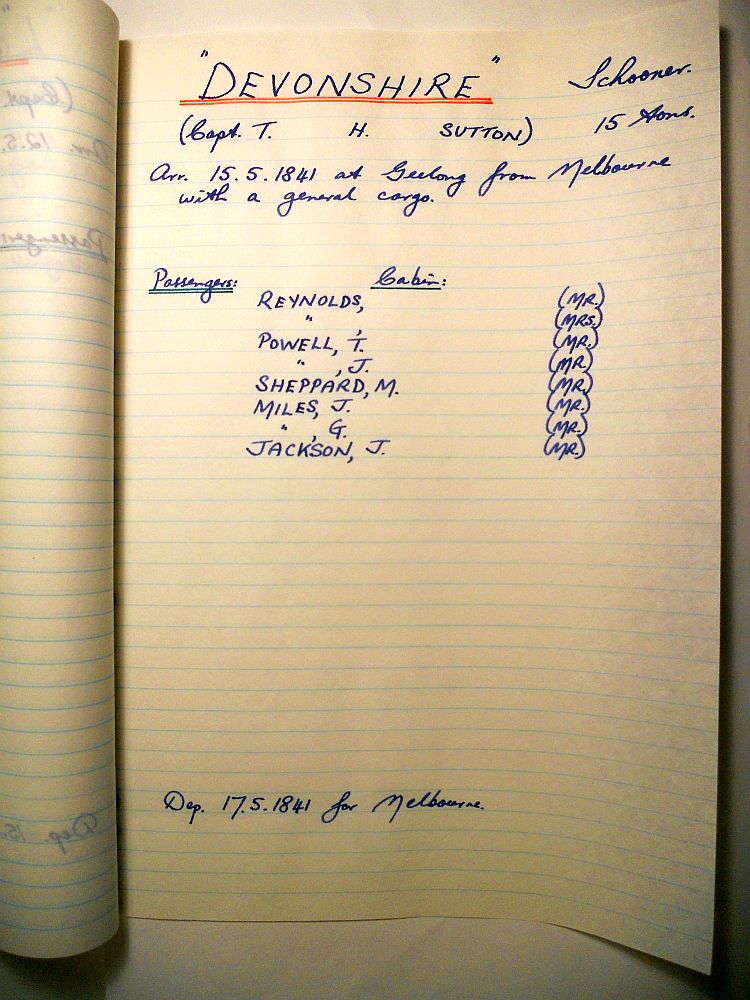 "DEVONSHIRE" Schooner.
(Capt. T. H. SUTTON) 15 tons.
Arr. 15.5.1841 at Geelong from Melbourne
with a general cargo.
Passengers: Cabin:
REYNOLDS, (MR.)
" , (MRS.)
POWELL, T. (MR.)
" , J. (MR.)
SHEPPARD, M. (MR.)
MILES, J. (MR.)
" , G. (MR.)
JACKSON, J. (MR.)
Dep. 17.5.1841 for Melbourne.